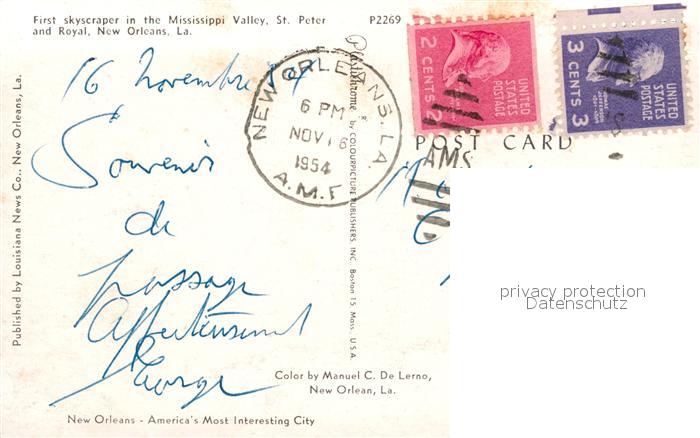 First skyscraper in the Mississippi Valley, St. Peter
and Royal, New Orleans, La.
P2269
16 Novembre 54
Souvenir
de
passage
Affectueusement
George
NEW ORLEANS, LA.
6 PM
NOV 16
1954
A.M.F
UNITED
STATES
POSTAGE
2 CENTS 2
UNITED
STATES
POSTAGE
3 CENTS 3
POST CARD
AMS
Published by Louisiana News Co., New Orleans, La.
Plastichrome ® by COLOURPICTURE PUBLISHERS, INC. Boston 15, Mass. U.S.A.
privacy protection
Datenschutz
Color by Manuel C. De Lerno,
New Orlean, La.
New Orleans - America's Most Interesting City